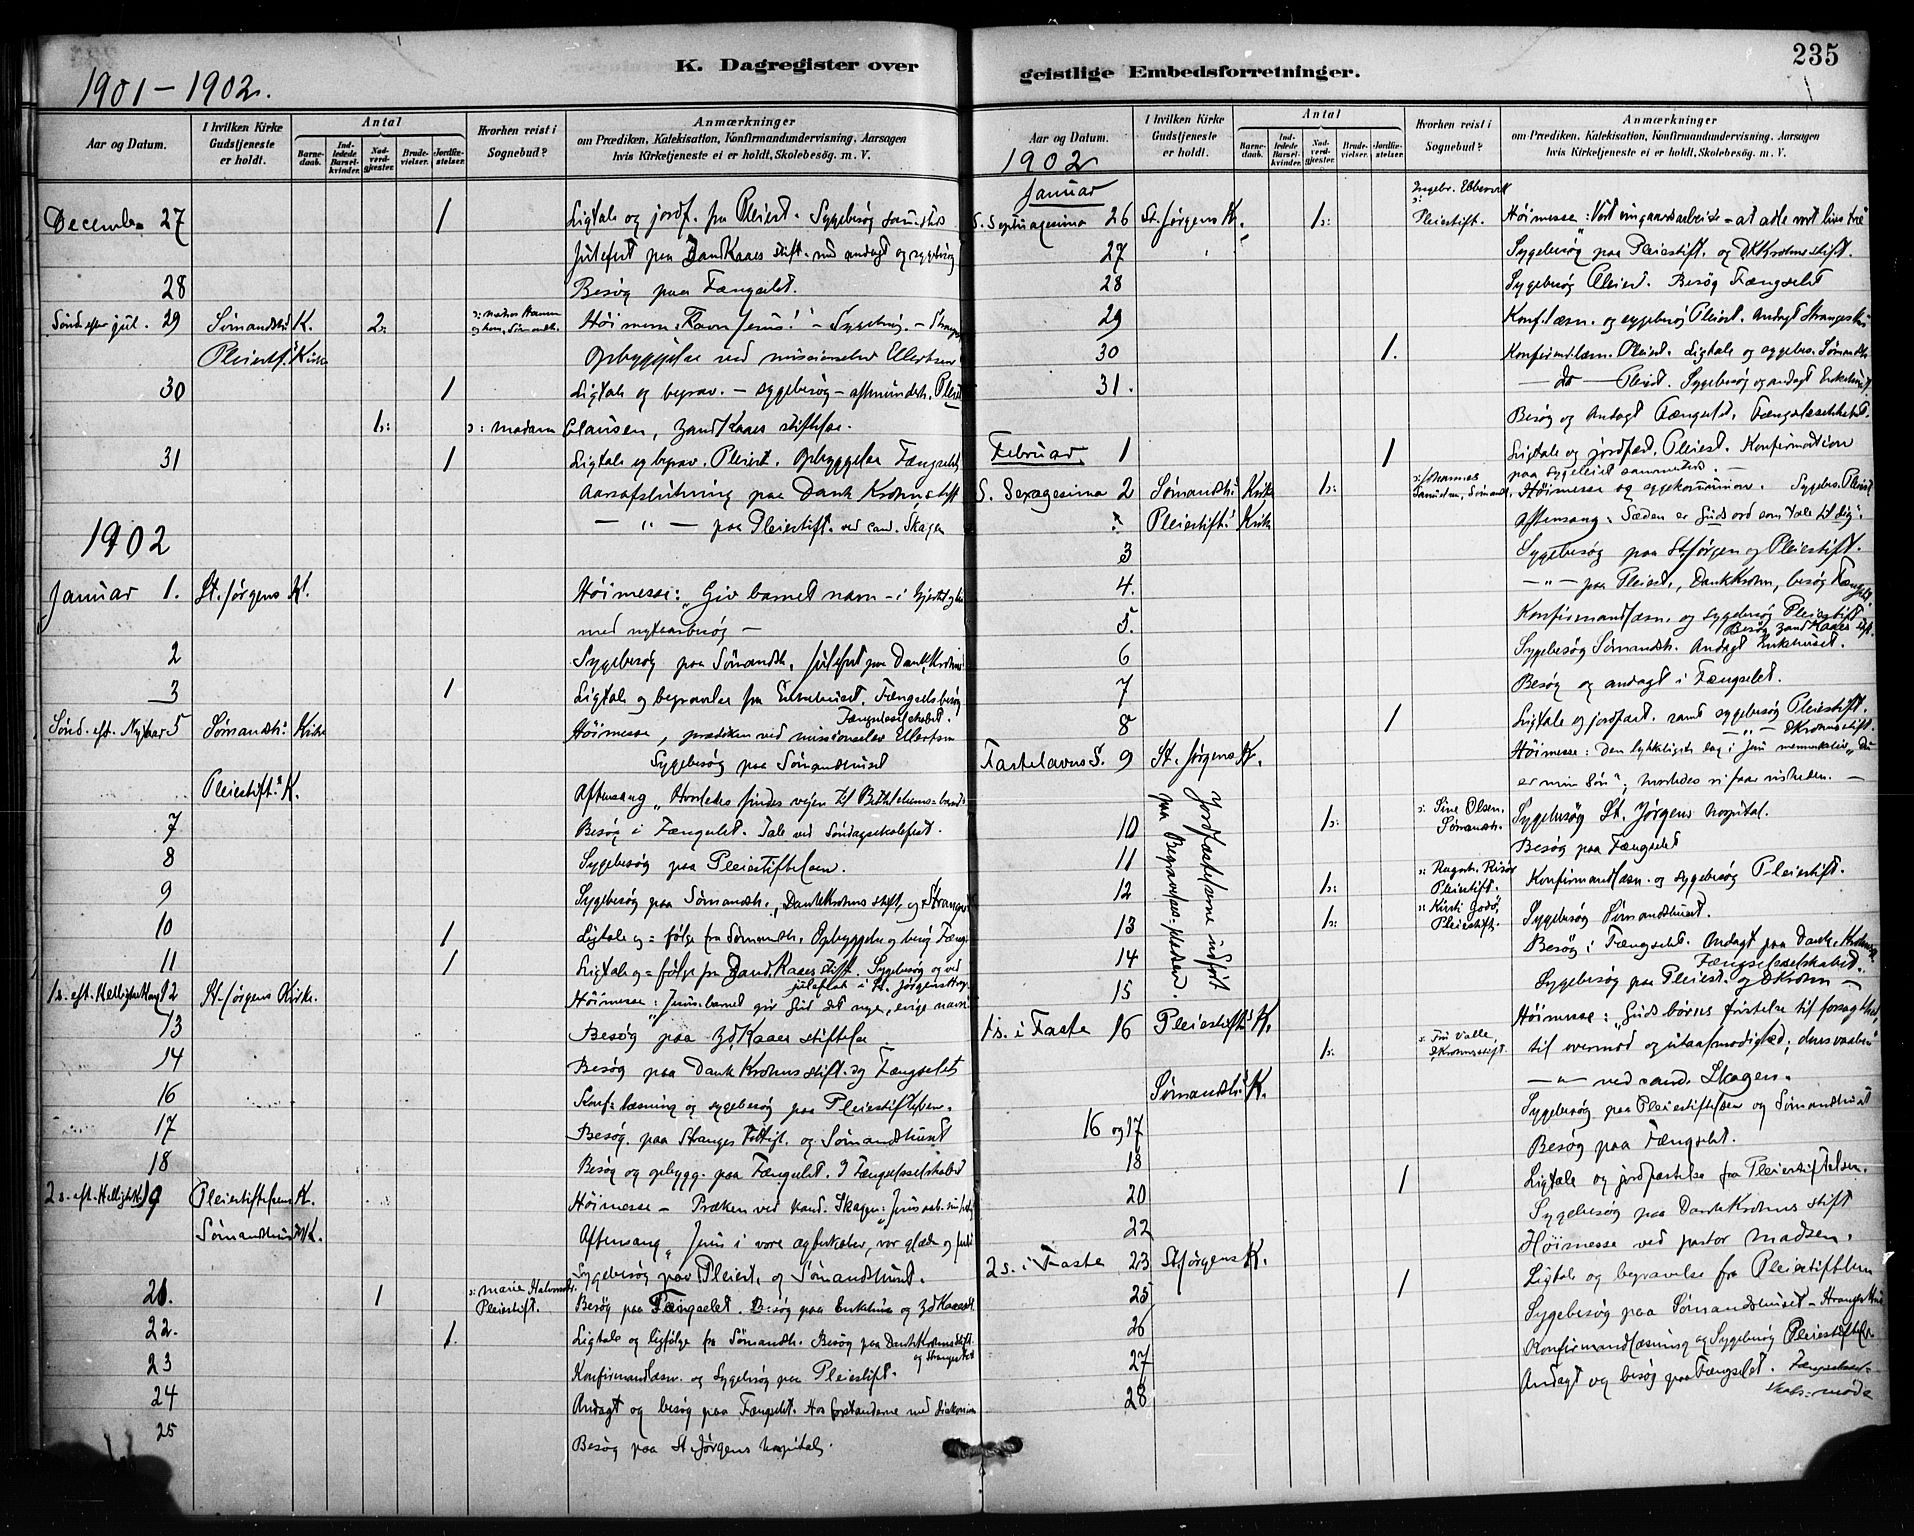 1901 – 1902.
K. Dagregister over
Aar og Datum.
I hvilken Kirke Gudstjeneste er holdt.
Antal
Barnedaab.
Indledede Barselkvinder.
Nadverdgjester.
Brudevielser.
Jordfæstelser.
Hvorhen reist i Sognebud?
Anmærkninger
om Prædiken, Katekisation, Konfirmandundervisning, Aarsagen
hvis Kirketjeneste ei er holdt, Skolebesøg. m. V.
December 27 1 Ligtale og jordf. fra Pleiest. Sygebesøg
Julefest paa Zand Kaaes stift. med andagt og sygebesøg
28 Besøg paa Fængselet.
Sønd. efter jul. 29 Sømandsh. K. 2
Pleiestf. Kirke Opbyggelse ved missionselev Ellertsen
30 1 Ligtale og begrav. – sygebesøg –
1 Madam Clausen, Zand Kaaes stiftelse.
31 1 Ligtale og begrav. Pleiest. Opbyggelse Fængselet
Aarsafslutning paa Dank Krohns stift
— " — paa Pleiestift. ved cand. Skagen
1902
Januar 1. St. Jørgens K. Høimesse: "Giv barnet navn – i hjertet
med nytaarbesøg –
2 Sygebesøg paa Sømandsh. Julefest paa Dank Krohns
3 1 Ligtale og begravelse fra Enkehuset. Fængselsbesøg
Fængselsselskabet.
Sønd. eft. Nytaar 5 Sømandsh. Kirke Høimesse, prædiken ved missionselev Ellertsen
Sygebesøg paa Sømandshuset
Pleiestift. K. Aftensang "Hvorledes findes veien til Bethlehems
7 Besøg i Fængselet. Tale ved Søndagsskolefest.
8 Sygebesøg paa Pleiestiftelsen.
9 Sygebesøg paa Sømandsh., Dank Krohns stift, og Stranges
10 1 Ligtale og følge fra Sømandsh. Opbyggelse og besøg Fæng.
11 1 Ligtale og følge fra Zand. Kaaes stift. Sygebesøg og ved
julefest i St. Jørgens Hosp.
1 s. eft. Helligtrekong. 12 St. Jørgens Kirke. Høimesse: "Jesu-barnet gir Gud det nye, evige navn
13 Besøg paa Zd Kaaes stiftelse
14 Besøg paa Dank Krohns stift. og Fængselet
16 Konf. læsning og sygebesøg paa Pleiestiftelsen.
17 Besøg paa Stranges Fattigh. og Sømandshuset
18 Besøg og opbygg. paa Fængselet. I Fængselsselskabet
2 s. eft. Helligtrek. 19 Pleiestiftelsens K. Høimesse – Præken ved kand. Skagen:
Sømandshusets K. Aftensang "Jesus i vore ægteskaber, vor glæde og
Sygebesøg paa Pleiest. og Sømandshuset.
21. 1 Marie Halvorsdt. Pleiestift. Besøg paa Fængselet. Besøg paa Enkehus og Zd Kaaes st.
22. 1. Ligtale og ligfølge fra Sømandsh. Besøg paa Dank Krohns stift
og Stranges
23 Konfirmandlæsn. og Sygebesøg paa Pleiestift.
24 Andagt og besøg paa Fængselet. Hos forstanderne med diakonisse
25 Besøg paa St. Jørgens hospital.
235
geistlige Embedsforretninger.
Aar og Datum.
I hvilken Kirke Gudstjeneste er holdt.
Antal
Barnedaab.
Indledede Barselkvinder.
Nadverdgjester.
Brudevielser.
Jordfæstelser.
Hvorhen reist i Sognebud?
Anmærkninger
om Prædiken, Katekisation, Konfirmandundervisning, Aarsagen
hvis Kirketjeneste ei er holdt, Skolebesøg. m. V.
1902
Januar
S. Septuagesima 26 St. Jørgens K. 1 Pleiestift. Høimesse: Vort vingaardsarbeide – at adle vort livs træ
27 Sygebesøg paa Pleiestift. og DKrohns stift.
28 Sygebesøg Pleiest. Besøg Fængselet
29 Konf. læsn. og sygebesøg Pleiest. Andagt Stranges Hus
30 1. Konfirmd. læsn. Pleiest. Ligtale og sygebes. Sømandsh.
31. — do — Pleiest. Sygebesøg og andagt Enkehuset
Besøg og Andagt Fængselet, Fængselsselskabet.
Februar 1 1 Ligtale og jordfæst. Pleiest. Konfirmation
paa sygeleiet sammesteds. –
S. Sexagesima 2 Sømandsh. Kirke 1 Johannes Samuelsen, Sømandsh. Høimesse og sygekommunion. Sygebes. Pleiest
Pleiestift. Kirke Aftensang: Sæden er Guds ord som tale til dig".
3 Sygebesøg paa St. Jørgen og Pleiestift.
4. — " — paa Pleiest., Dank Krohn, besøg Fængselet.
5. Konfirmandlæsn. og sygebesøg Pleiestift.
Besøg Zand Kaaes stift.
6 Sygebesøg Sømandsh. Andagt Enkehuset.
7 Besøg og andagt i Fængselet.
8 1 Ligtale og jordfæst. samt sygebesøg Pleiestift.
— " — DKrohns stift.
Fastelavns S. 9 St. Jørgens K. Høimesse: Den lykkeligste dag i Jesu menneskeliv "Du
er min Søn"; hvorledes vi faar visheden. –
Jordfæstelserne udført
paa Begravelses-pladsen.
10 1 Sine Olsen, Sømandsh. Sygebesøg St. Jørgens hospital.
11 Besøg paa Fængselet
12 1 Pleiestift. Konfirmandlæsn. og sygebesøg Pleiestift.
13 1 Kirsti Godø, Pleiestift. Sygebesøg Sømandshuset.
14 Besøg i Fængselet. Andagt paa Dank. Krohns st.
Fængselsselskabet.
15 Sygebesøg paa Pleiest. og DKrohn –
1 s. i Faste 16 Pleiestift. K. Høimesse: "Guds børns fristelse til forsagthed,
1 Fru Valle, DKrohns stift. til overmod og utaalmodighed; deres vaaben"
Sømandsh. K. — " — ved cand. Skagen.
16 og 17 Sygebesøg paa Pleiestiftelsen og Sømandshuset
18 Besøg paa Fængselet.
20 1 Ligtale og jordfæstelse fra Pleiestiftelsen.
22 Sygebesøg paa Dank Krohns stift
2 s. i Faste 23 St Jørgens K. Høimesse ved pastor Madsen.
25 1 Ligtale og begravelse fra Pleiestiftelsen
26 Sygebesøg paa Sømandshuset – Stranges Hus
27 Konfirmandlæsning og Sygebesøg Pleiestiftelse
28 Andagt og besøg paa Fængselet. Fængselssel-
skabs-møde